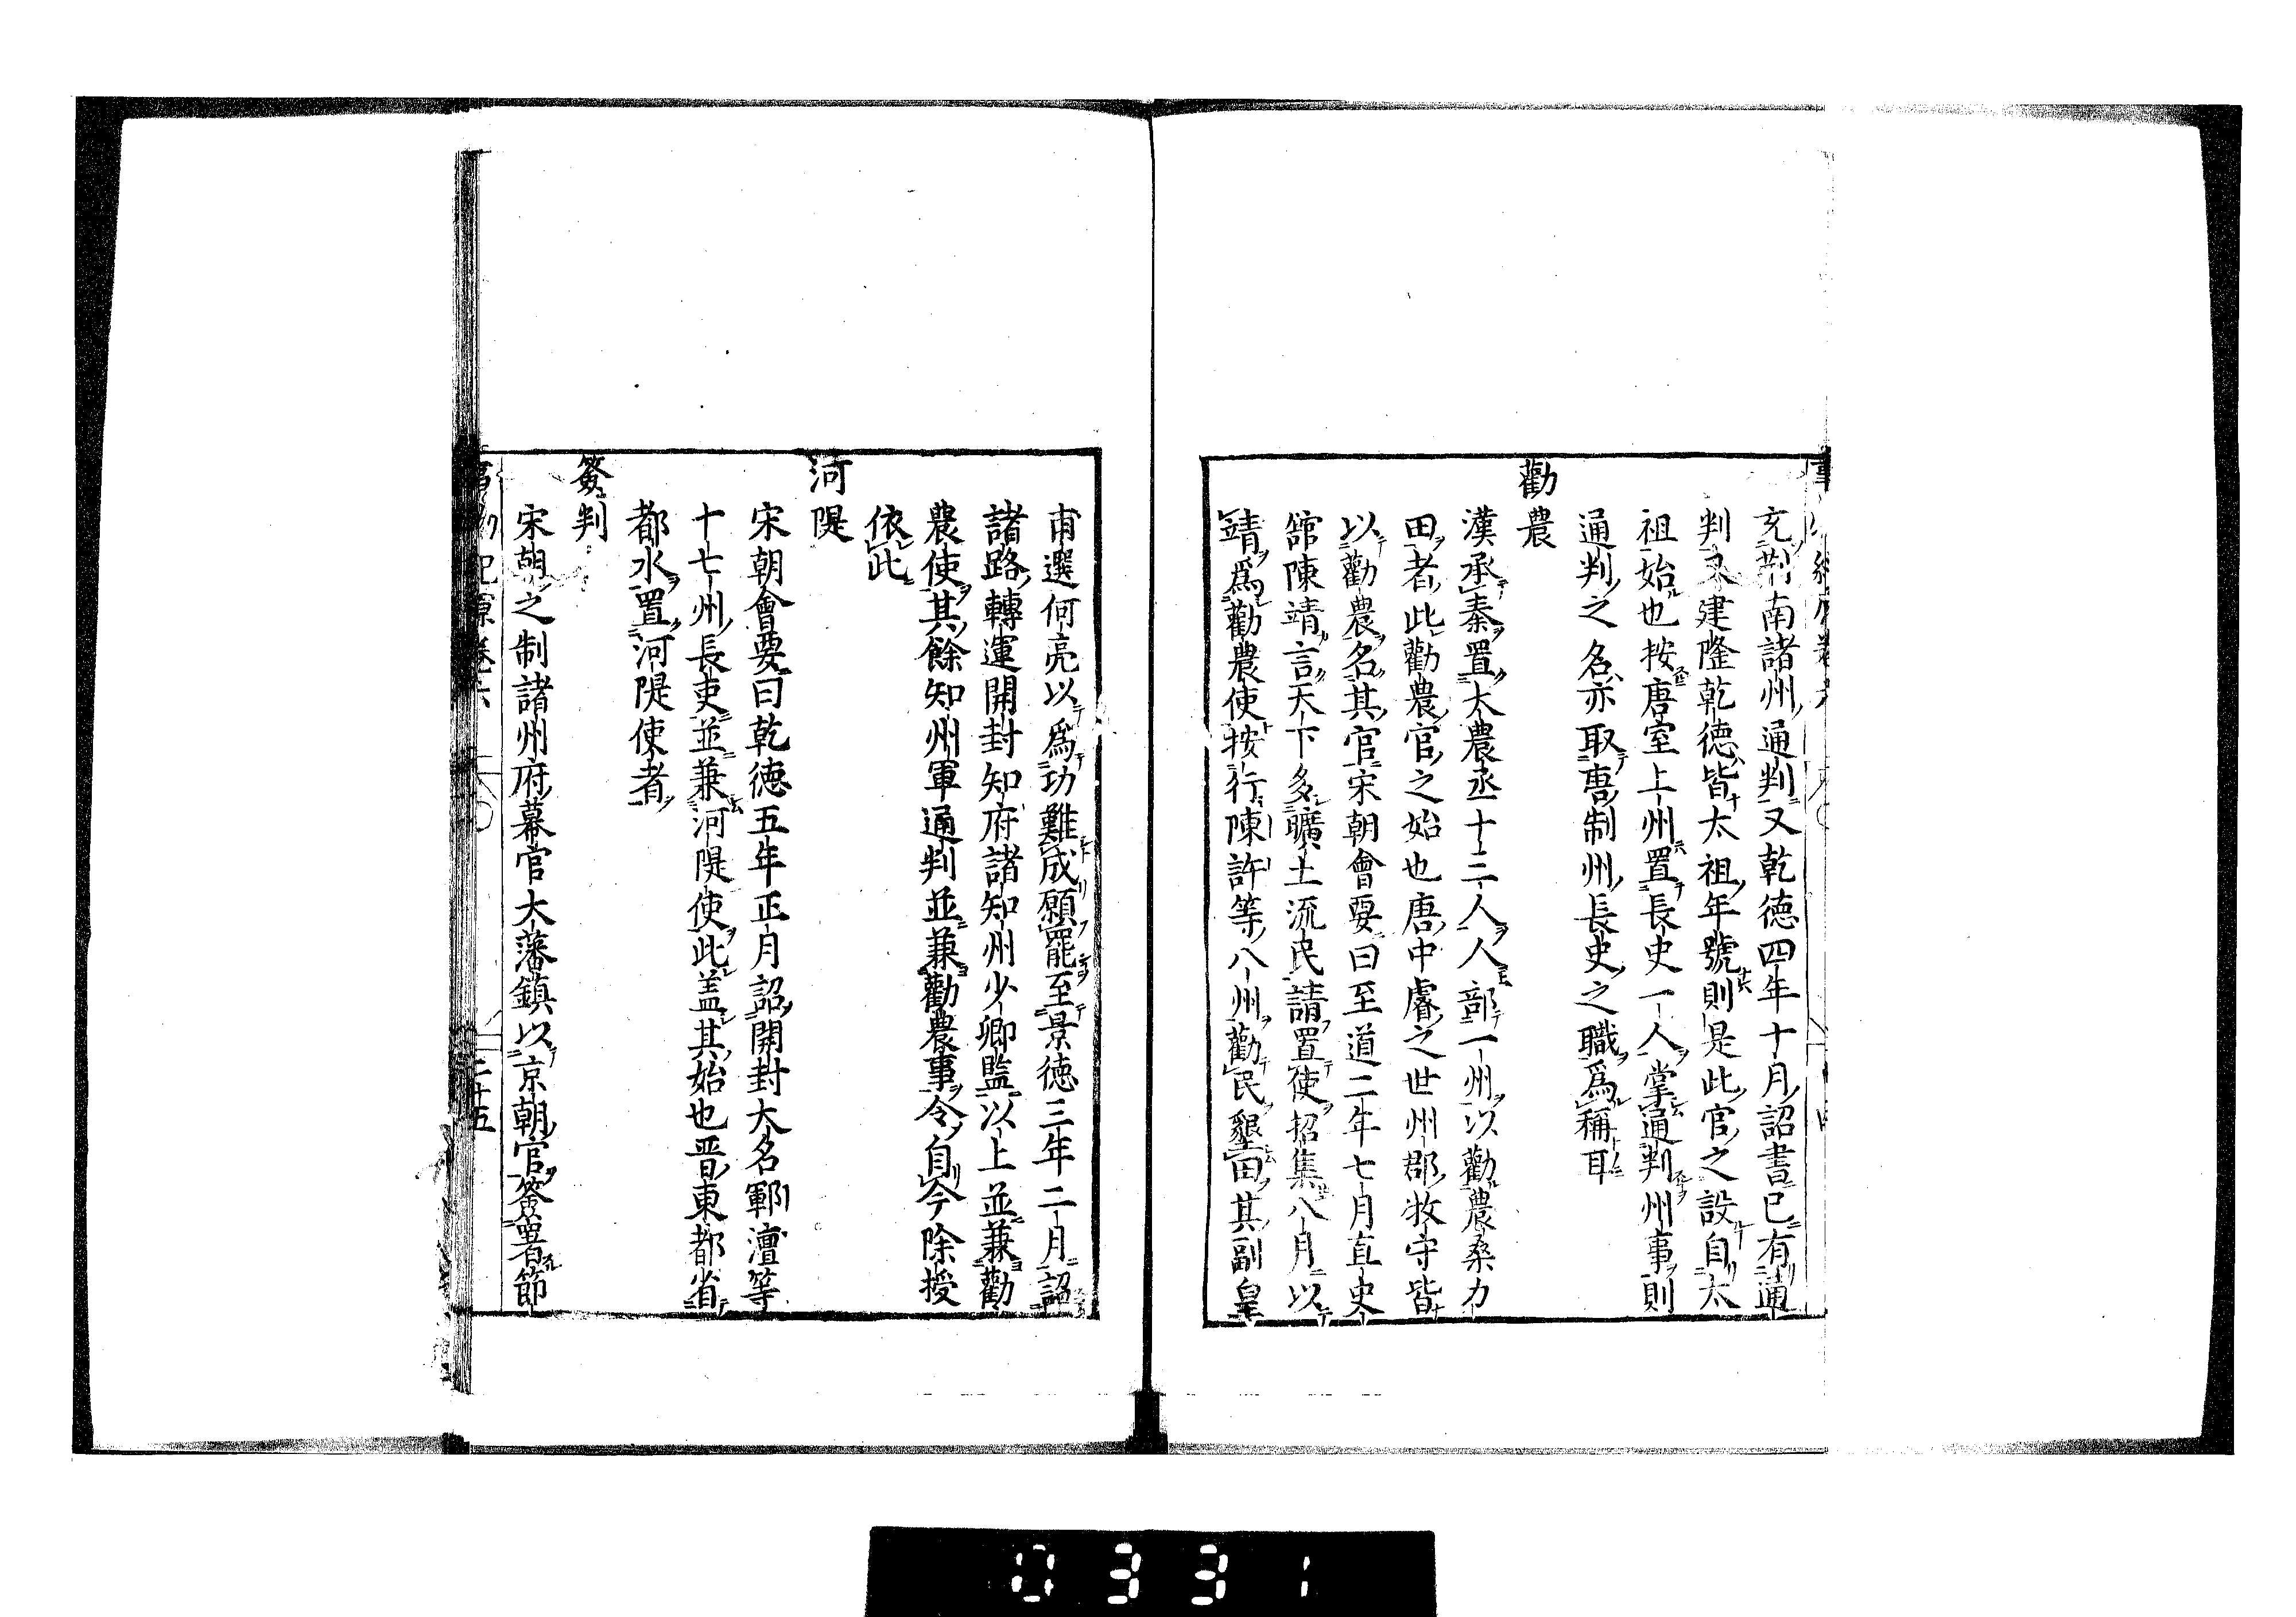 充荆南諸州通判又乾德四年十月詔書已有通
判又建隆乾德皆太祖年號則是此官之設自太
祖始也按唐室上州置長史一人掌通判州事則
通判之名亦取唐制州長史之職爲稱耳
勸農
漢承秦置大農丞十三人人部一州以勸農桑力
田者此勸農官之始也唐中睿之世州郡牧守皆
以勸農名其官宋朝會要曰至道二年七月直史
舘陳靖言天下多曠土流民請置使招集八月以
靖爲勸農使按行陳許等八州勸民墾田其副皇
甫選何亮以爲功難成願罷至景德三年二月詔
諸路轉運開封知府諸知州少卿監以上並兼勸
農使其餘知州軍通判並兼勸農事令自今除授
依此
河隄
宋朝會要曰乾德五年正月詔開封大名鄆澶等
十七州長吏並兼河隄使此盖其始也晋東都省
都水置河隄使者
簽判
宋朝之制諸州府幕官大藩鎮以京朝官簽署節
事物紀原卷六
二十五
0331